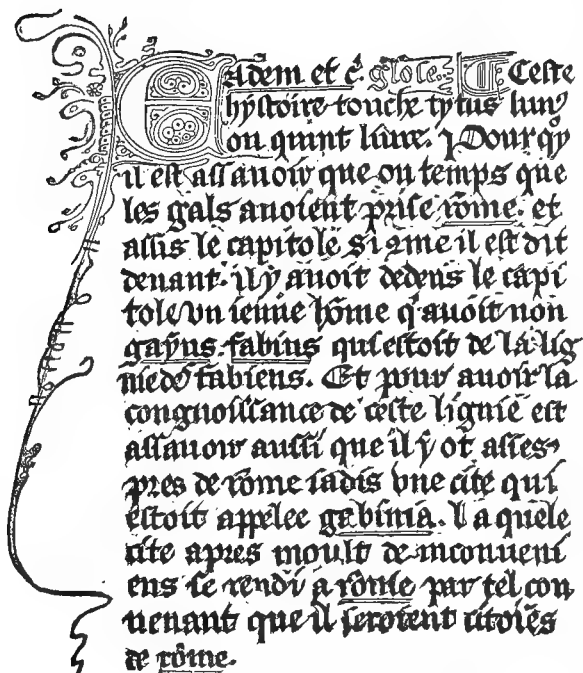 Eadem et c̄. Glose. ¶ Ceste
hystoire touche tytus lun⁹
ou quint liure. Pour qy
il est assauoir que ou temps que
les gals auoient prise rōme. et
assis le capitole si 2me il est dit
deuant. il y auoit dedens le capi
tole vn ieune hōme q̓ auoit non
gayus fabius qui estoit de la lig
niede fabiens. Et pour auoir la
congnoissance de ceste lignie est
assauoir aussi que il y ot asses
pres de rōme iadis vne cite qui
estoit appelee gabinia. La quele
cite apres moult de inconueni
ens se rendi a rōme par tel con
uenant que il seroient citoiēs
de rōme.